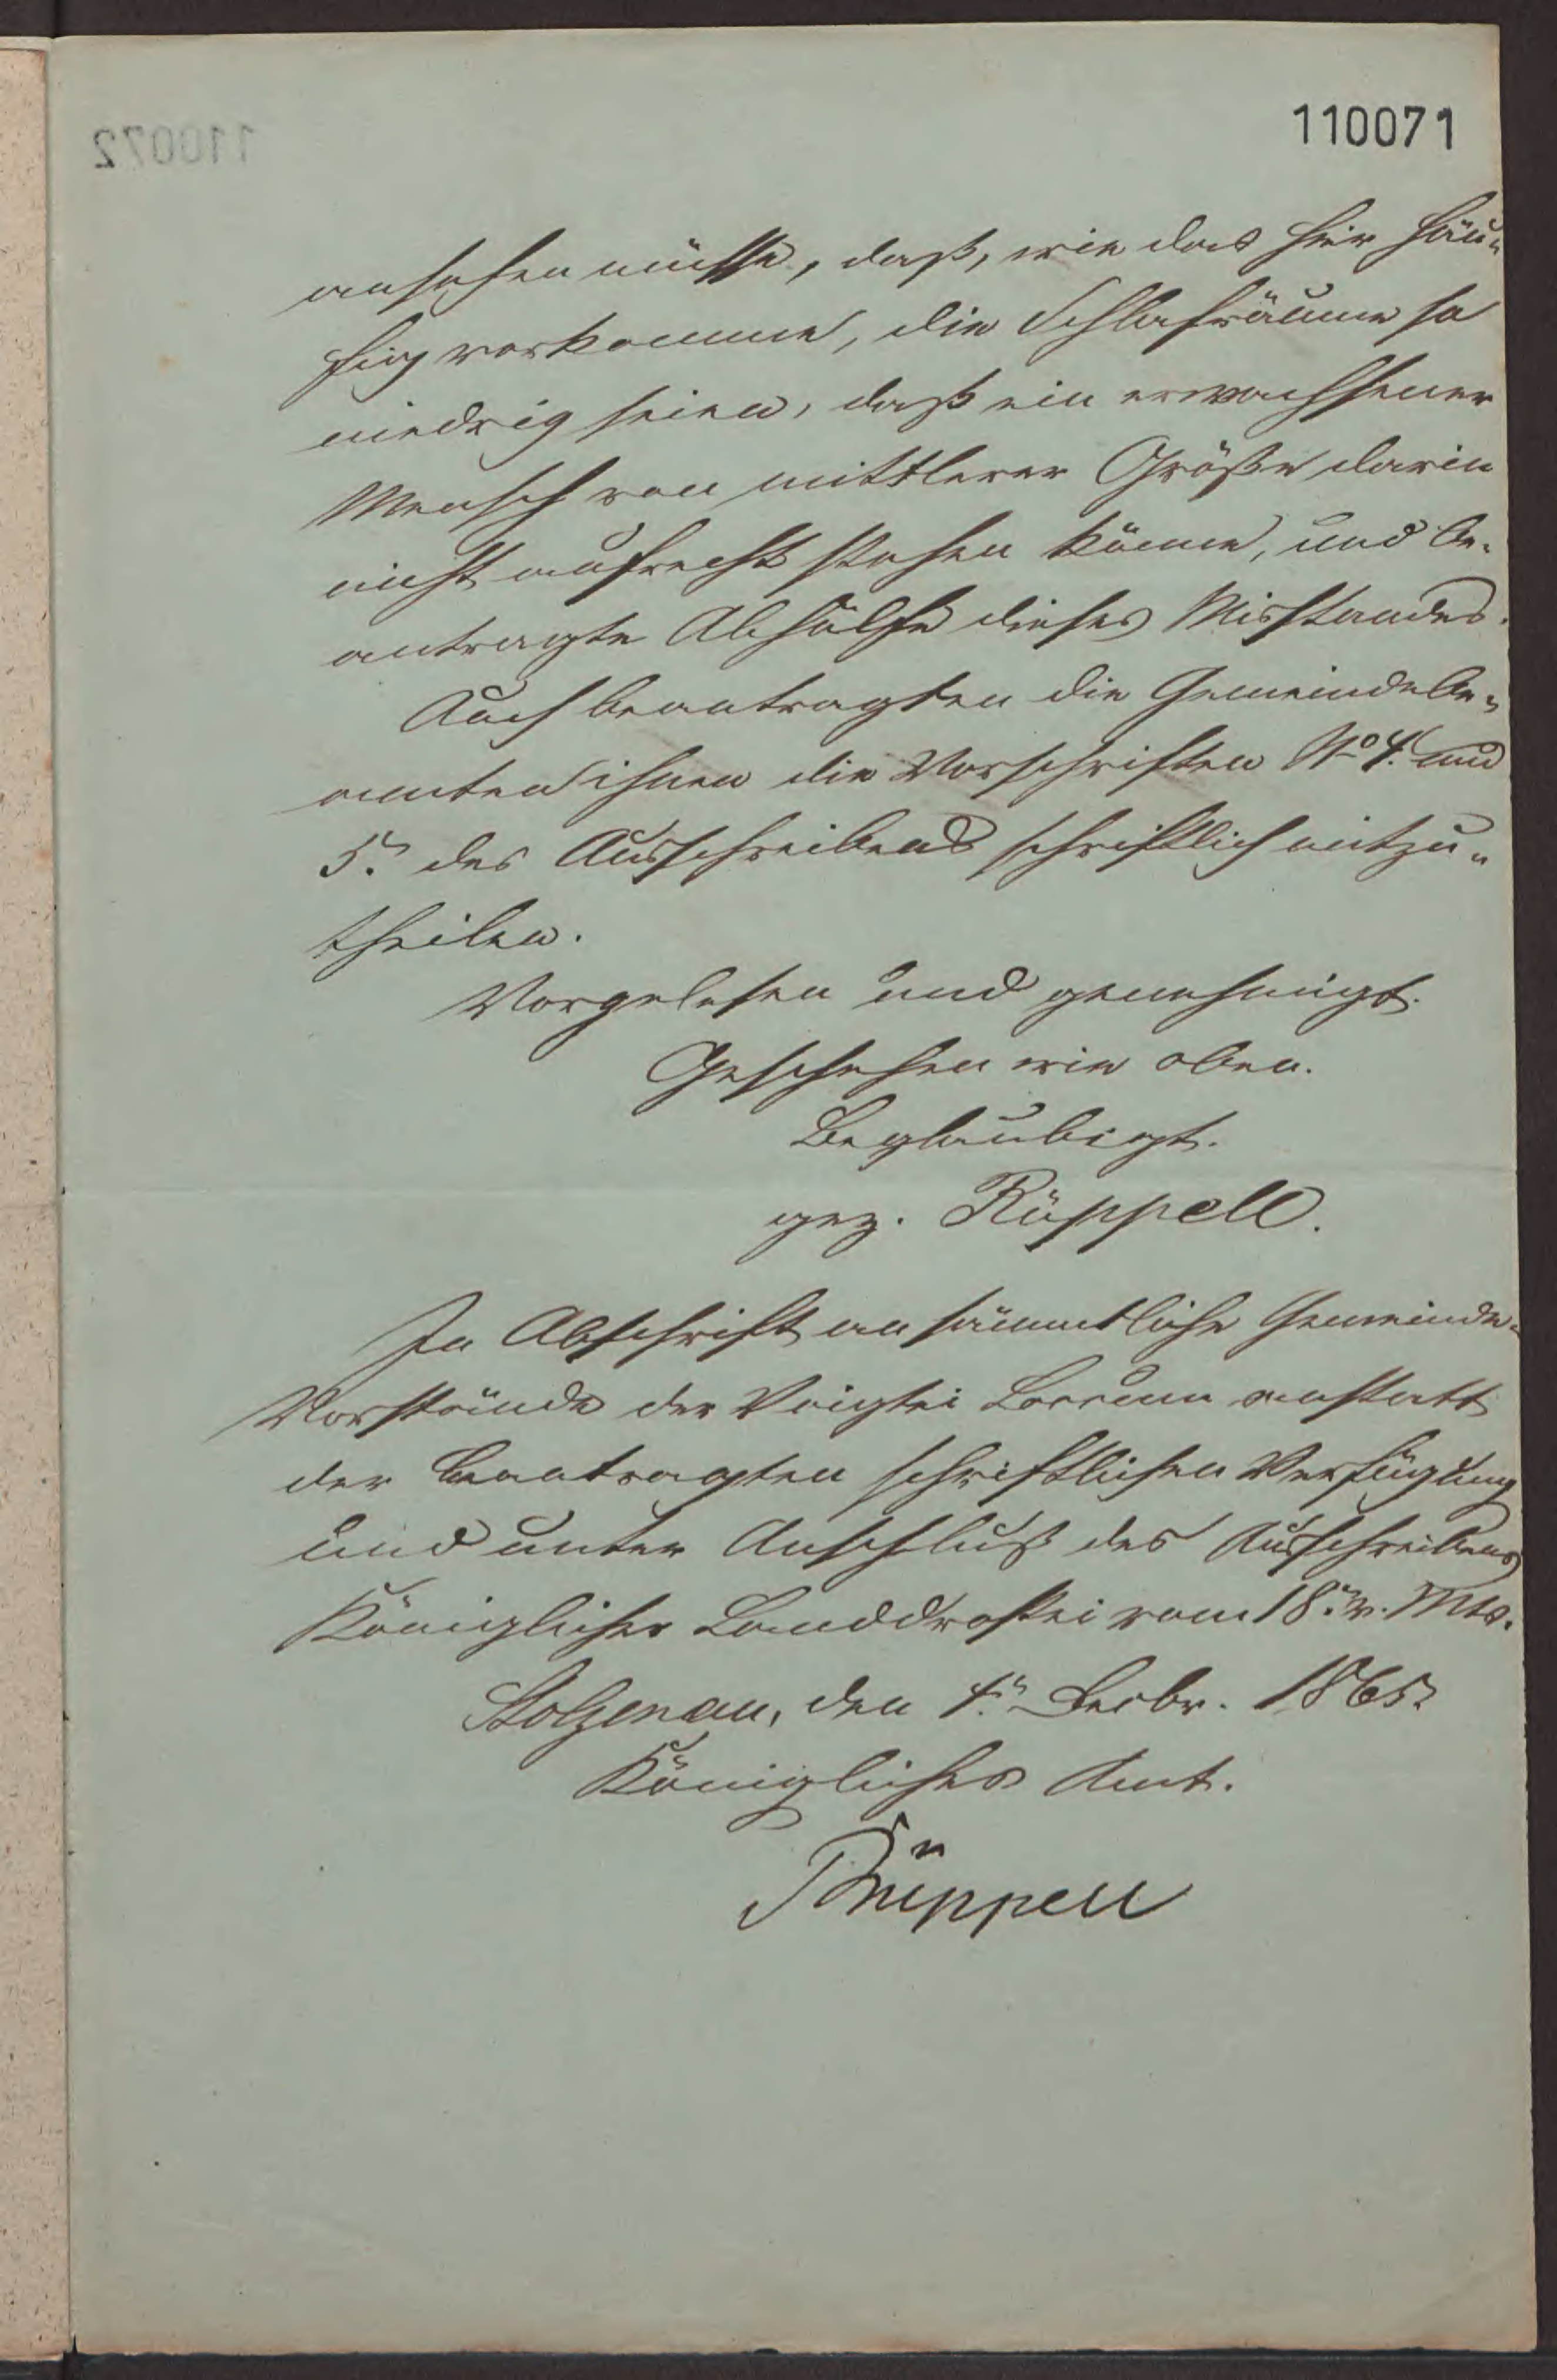 110071
ansehen müsse, daß, wie das hier häu-
fig vorkomme, die Schlafräume so
niedrig seien, daß ein erwachsener
Mensch von mittlerer Größe darin
nicht aufrecht stehen könne, und be-
antragte Abhülfe dieses Misstandes.
Auch beantragten die Gemeindebe-
amten ihnen die Vorschriften No 4. und
5. des Ausschreibens schriftlich mitzu-
theilen.
Vorgelesen und genehmigt.
Geschehen wie oben.
Beglaubigt.
gez. Rüppell.
In Abschrift an sämmtliche Gemeinde-
Vorstände der Voigtei Loccum anstatt
der beantragten schriftlichen Verfügung
und unter Anschluß des Ausschreibens
Königlicher Landdrostei vom 18. v. Mts.
Stolzenau, den 4. Decbr. 1865.
Königliches Amt.
Rüppell
110072